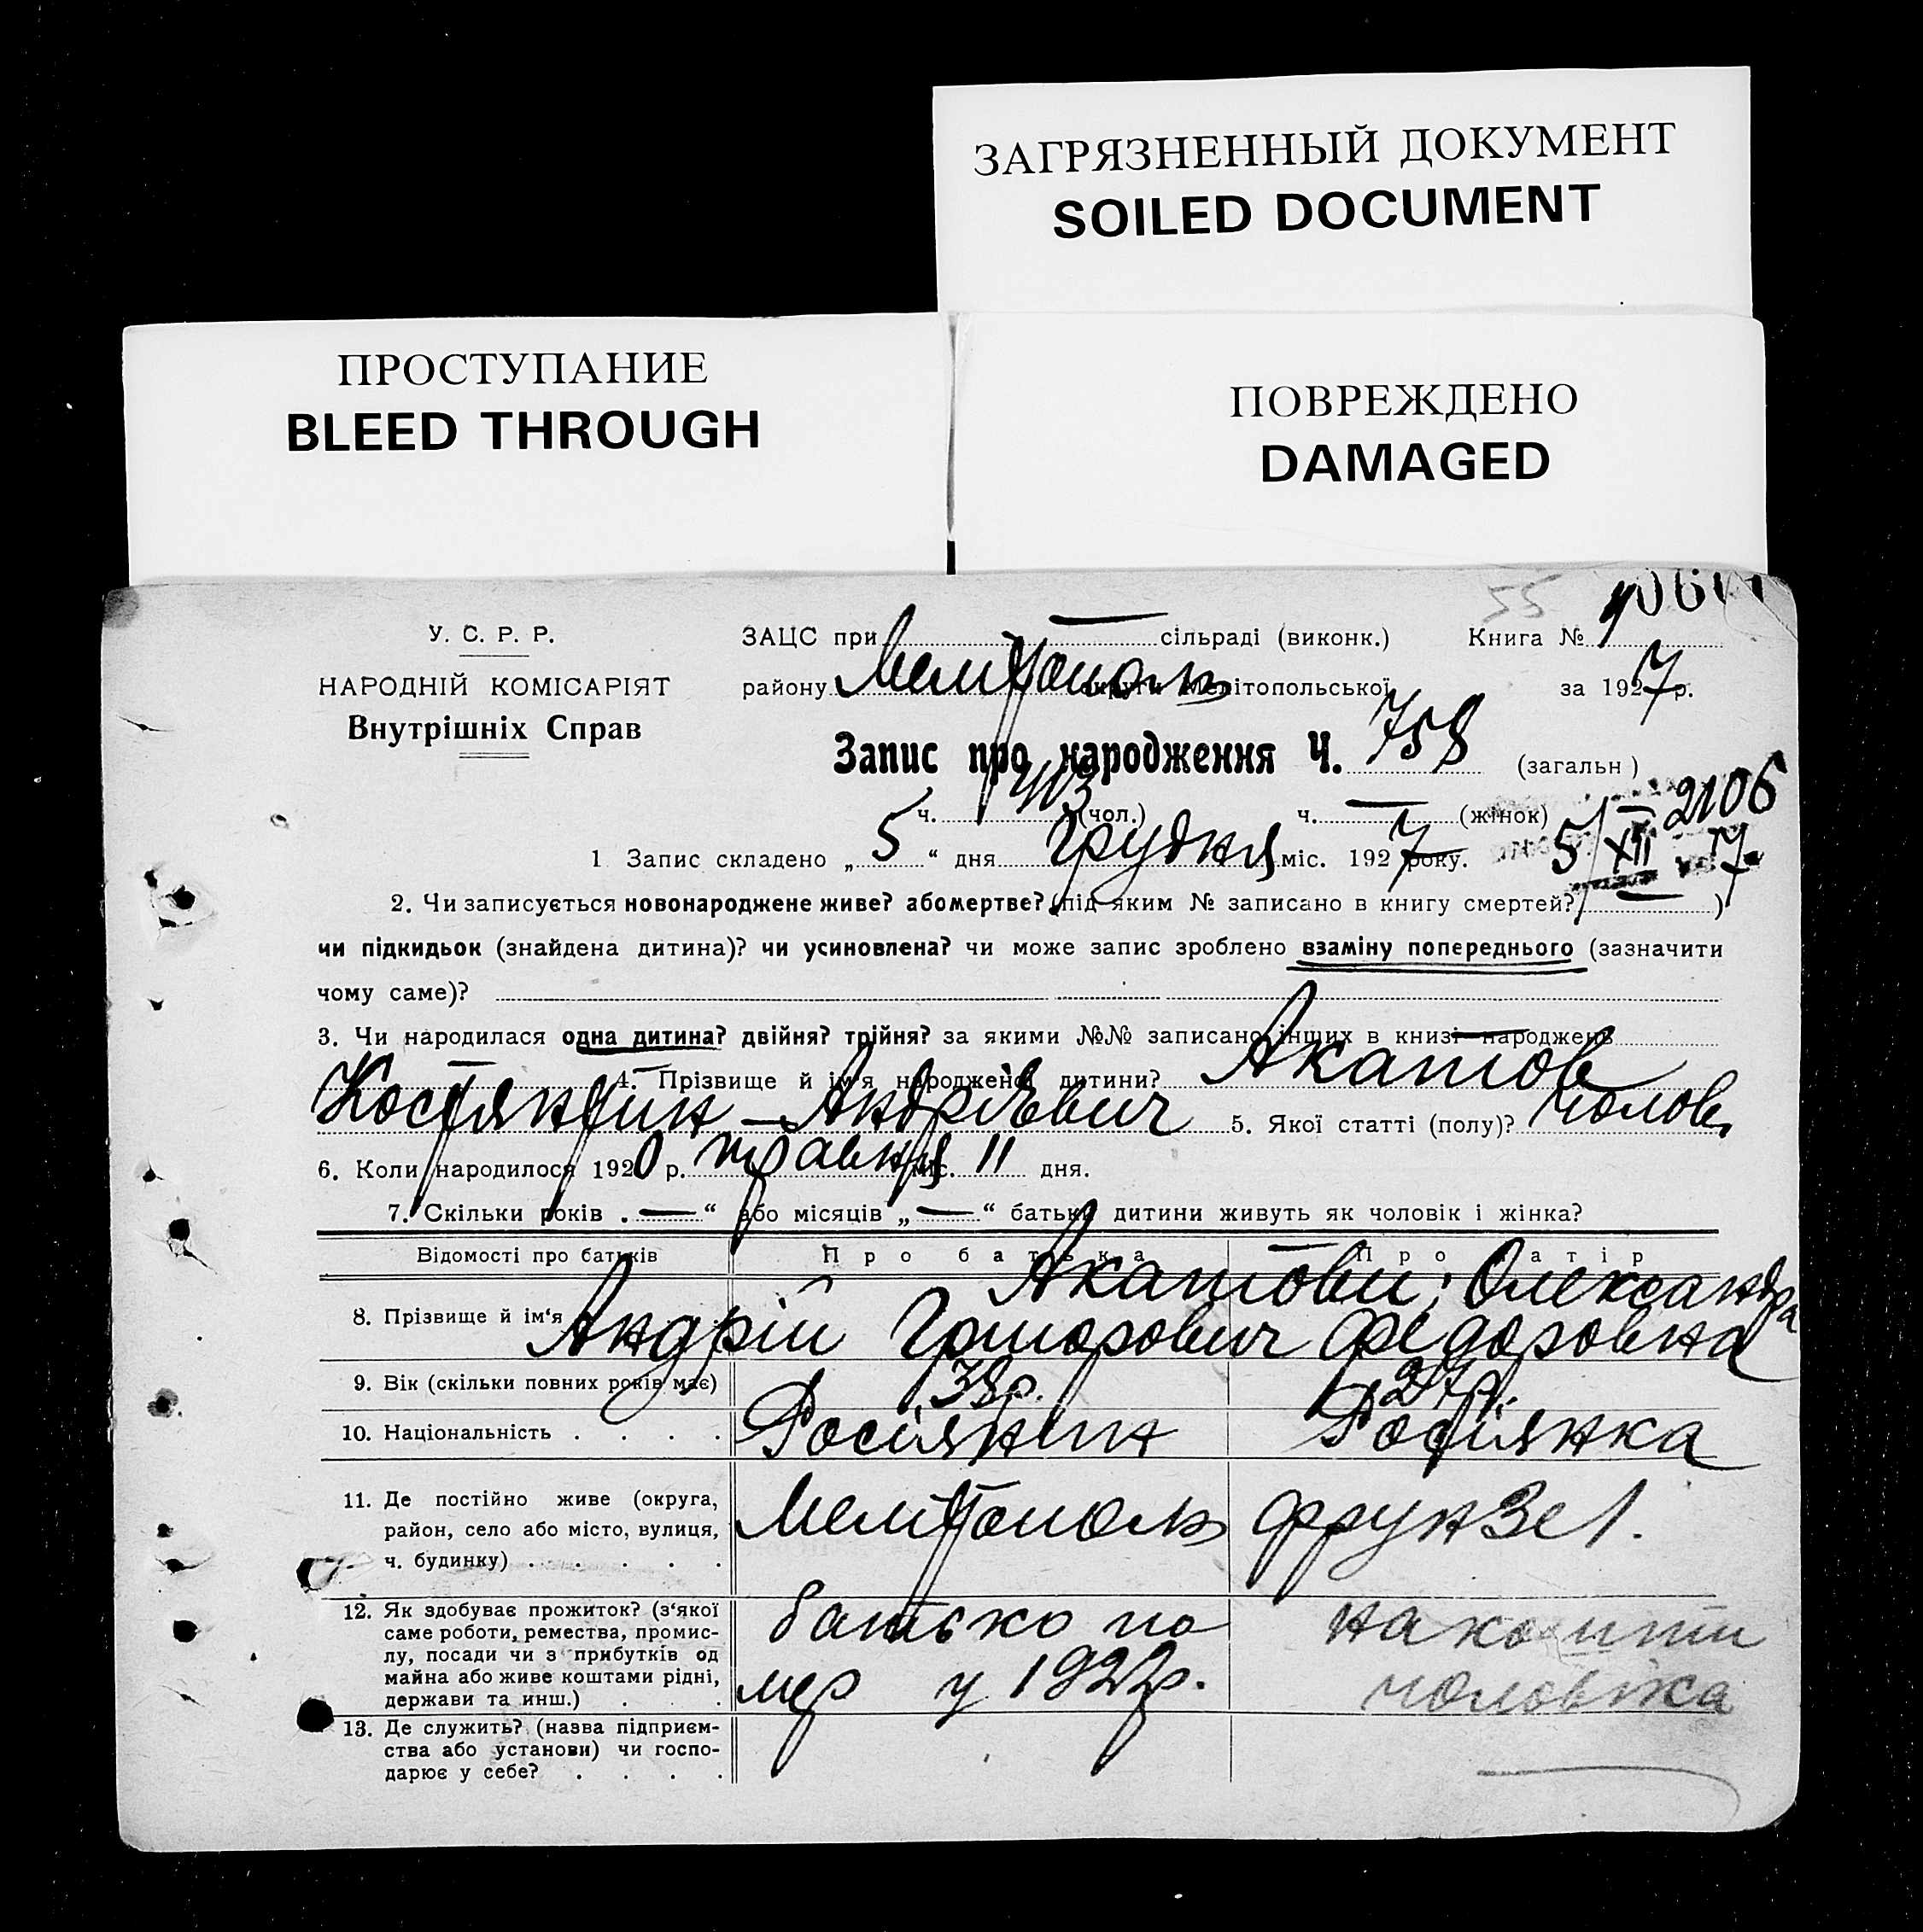 ЗАГРЯЗНЕННЫЙ ДОКУМЕНТ
SOILED DOCUMENT
ПРОСТУПАНИЕ
BLEED THROUGH
ПОВРЕЖДЕНО
DAMAGED
55
У. С. Р. Р.
НАРОДНІЙ КОМІСАРІЯТ
Внутрішніх Справ
ЗАЦС при — сільраді (виконк.) Книга №
району Мелітополь округи Мелітопольської за 1927 р.
Запис про народження Ч. 758 (загальн)
ч. 403 (чол.) ч. — (жінок)
2106
5/XII 7
1 Запис складено „5“ дня Грудня міс. 1927 року.
2. Чи записується новонароджене живе? або мертве? (під яким № записано в книгу смертей? —)
чи підкидьок (знайдена дитина)? чи усиновлена? чи може запис зроблено взаміну попереднього (зазначити
чому саме)?
3. Чи народилася одна дитина? двійня? трійня? за якими №№ записано інших в книзі народжень
4. Прізвище й ім'я народженої дитини? Акатов
Костянтин – Андрієвич 5. Якої статті (полу)? чолов.
6. Коли народилося 1920 р. травня міс. 11 дня.
7. Скільки років „—“ або місяців „—“ батьки дитини живуть як чоловік і жінка?
Відомості про батьків Про батька Про матір
Акатови; Олександра
8. Прізвище й ім'я Андрій Григорович Федоровна
9. Вік (скільки повних років має) 38 р. 27 р.
10. Національність . . . . Росіянин Росіянка
11. Де постійно живе (округа,
район, село або місто, вулиця,
ч. будинку) . . . . .
Мелітополь Фрунзе 1.
12. Як здобуває прожиток? (з'якої
саме роботи, ремества, промис-
лу, посади чи з прибутків од
майна або живе коштами рідні,
держави та инш.) . . .
батько по
мер у 1922 р.
на кошти
чоловіка
13. Де служить? (назва підприєм-
ства або установи) чи госпо-
дарює у себе? . . . .